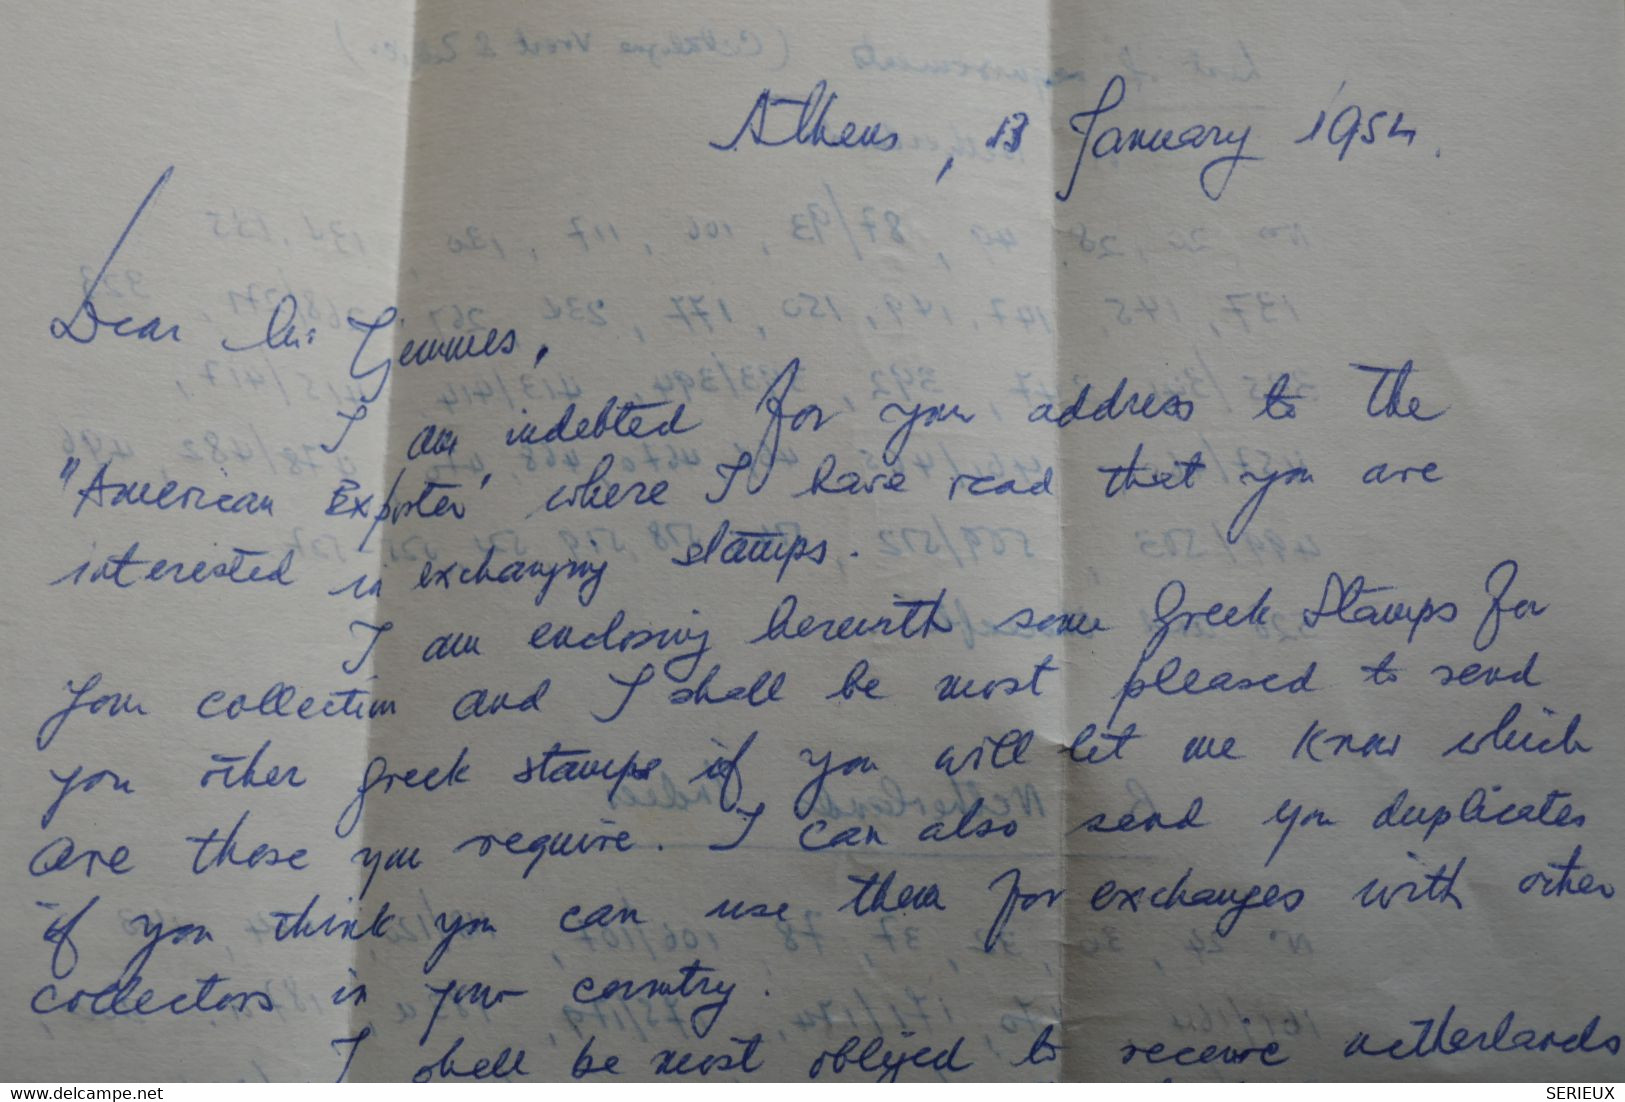 Athens, 13 January 1954.
Dear Mr Timmes,
I am indebted for your address to the
"American Exporter" where I have read that you are
interested in exchanging stamps.
I am enclosing herewith some Greek Stamps for
your collection and I shall be most pleased to send
you other Greek stamps if you will let me know which
are those you require. I can also send you duplicates
if you think you can use them for exchanges with other
collectors in your country.
I shall be most obliged to receive Netherlands
delcampe.net
SERIEUX